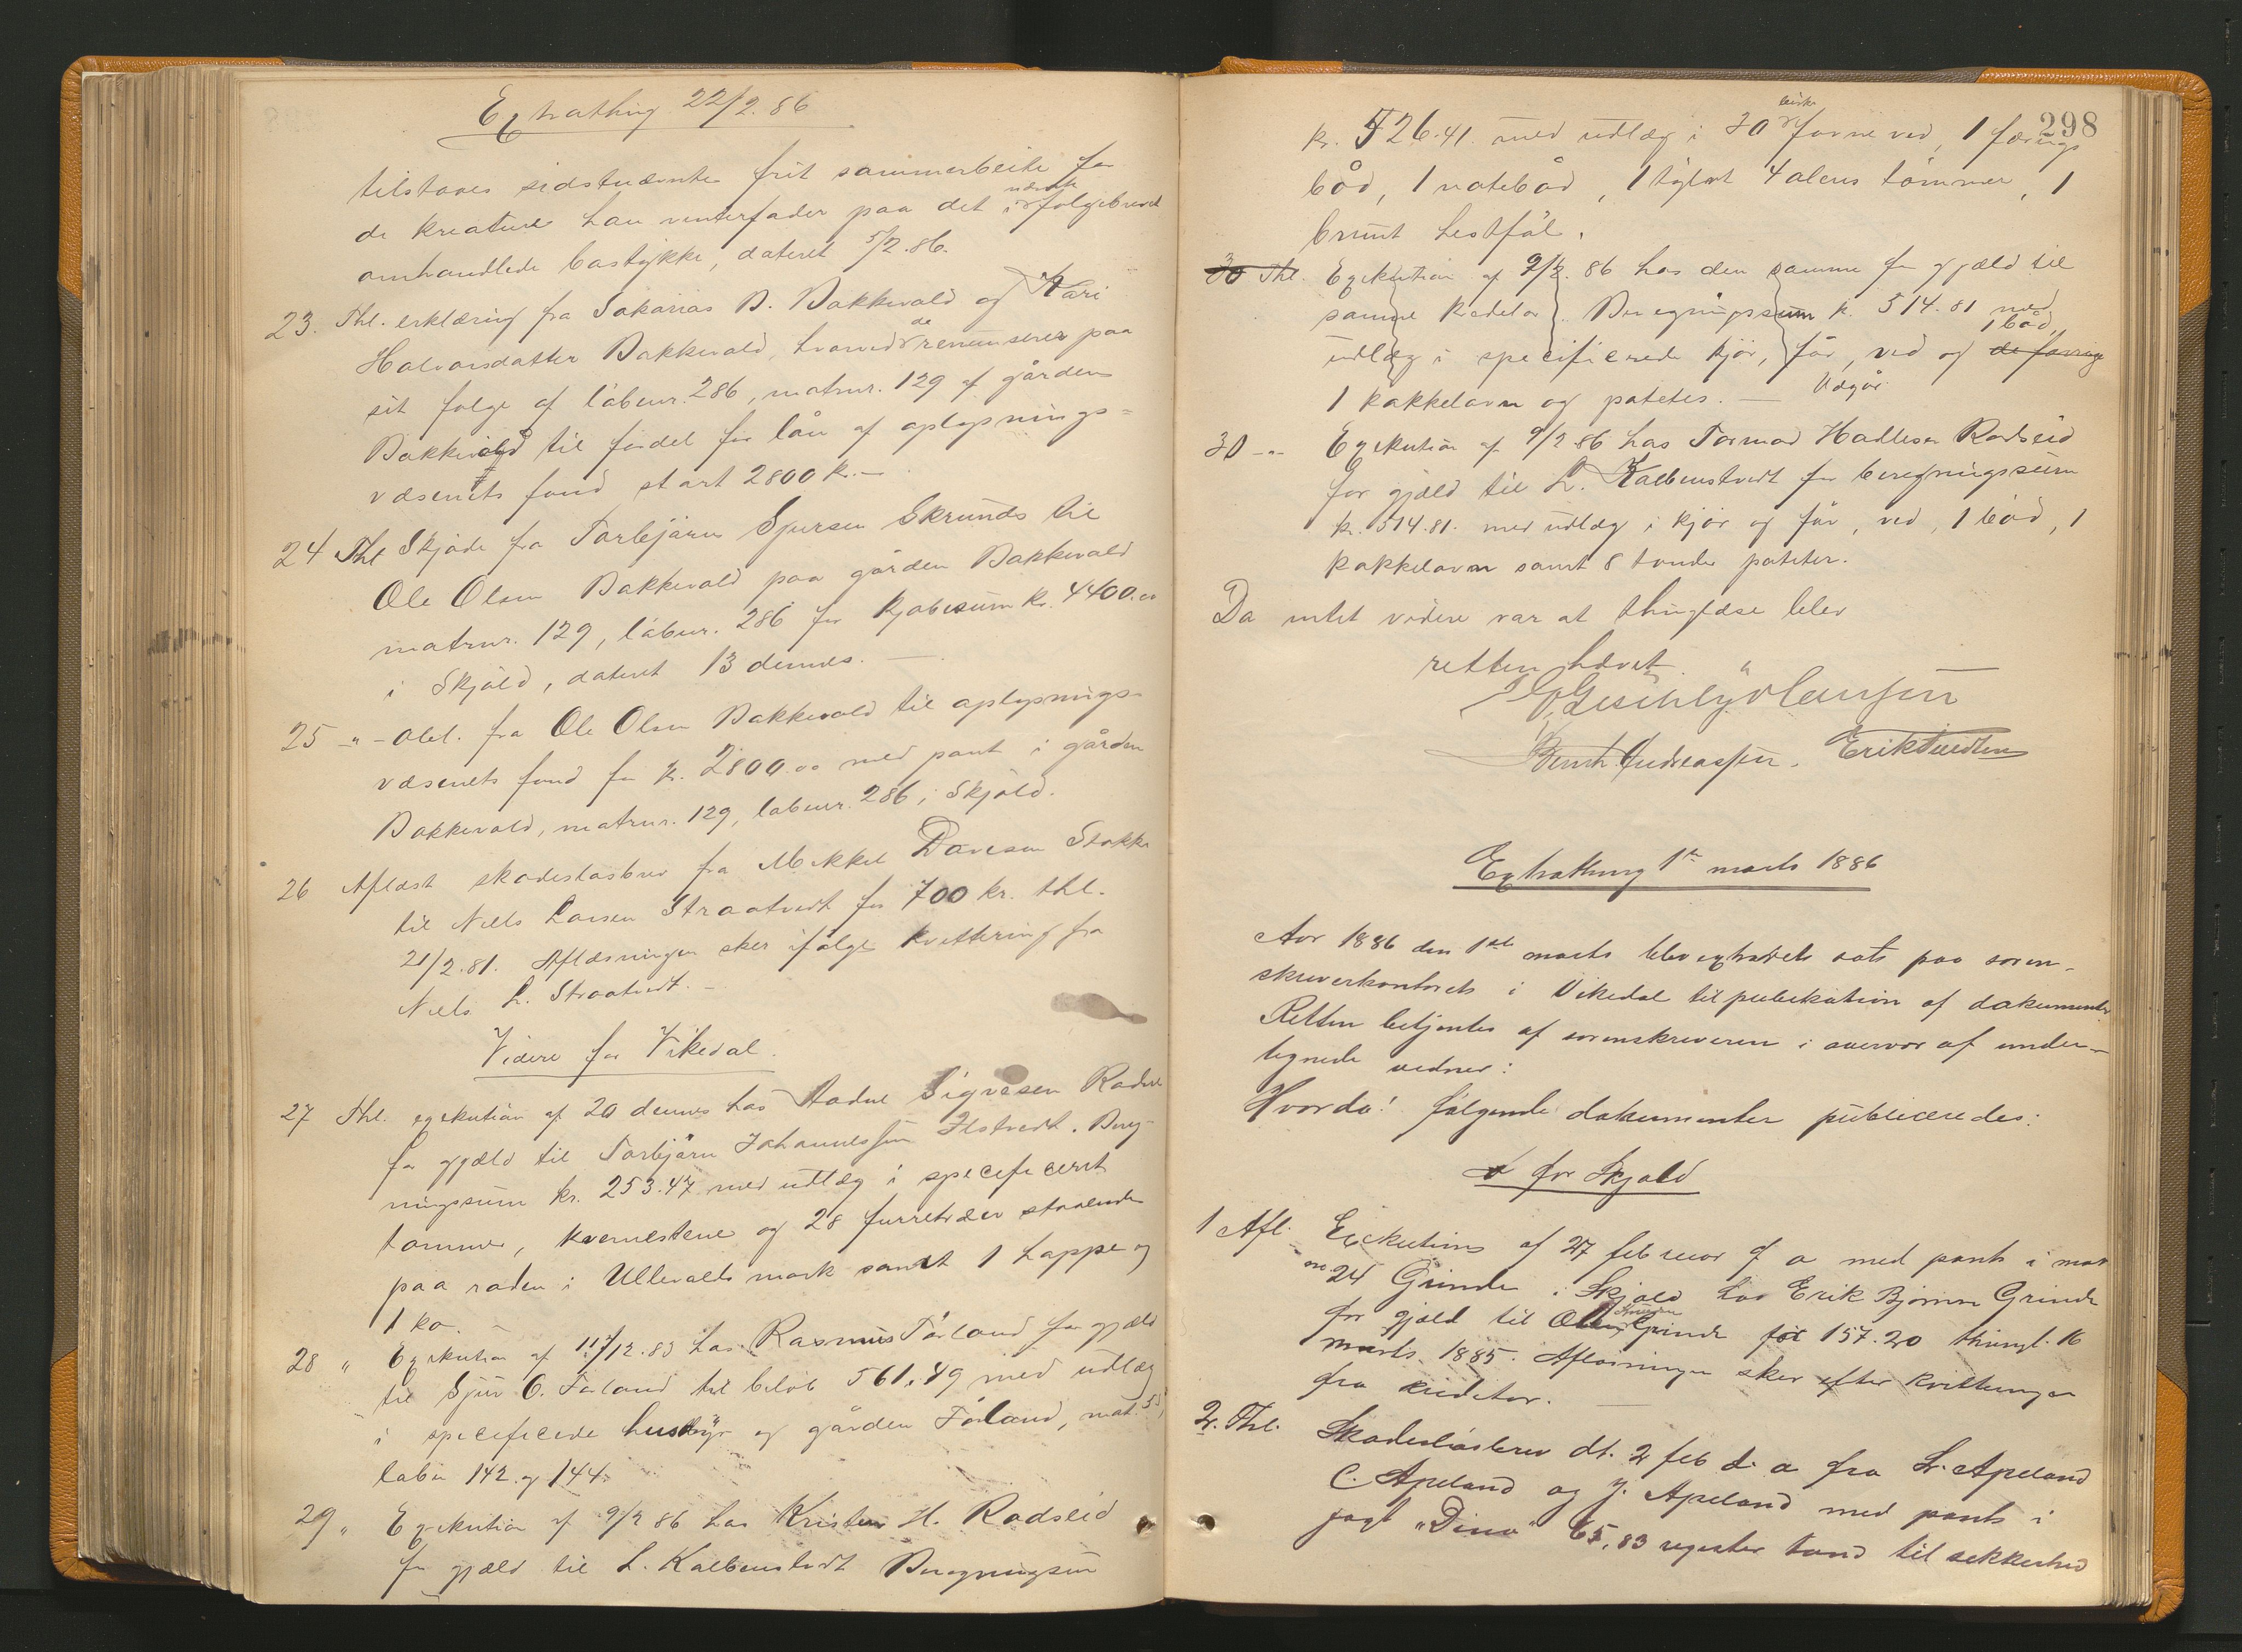 Extrathing 22/2.86
tilstaaes sidstnævnte frit sommerbeite for
de kreature han vinterføder paa det i nævnte følgebrevet
omhandlede bøstykke, dateret 5/2.86.
23. Thl. erklæring fra Sakarias B. Bakkevold og Kari
Halvorsdatter Bakkevold, hvorved de renunserer paa
sit følge af løbenr. 286, matrnr. 129 af gården
Bakkevold til fordel for lån af oplysnings=
væsenets fond stort 2800 k.—
24 Thl Skjøde fra Torbjørn Sjursen Skrunds til
Ole Olsen Bakkevold paa gården Bakkevold
matrnr. 129, løbnr. 286 for kjøbesum kr. 4400.00
i Skjold, dateret 13 dennes.—
25 -"- Obl. fra Ole Olsen Bakkevold til oplysnings-
væsenets fond for k. 2800.00 med pant i gården
Bakkevold, matrnr. 129, løbenr. 286 i Skjold.
26 Aflæst skadesløsbrev fra Mikkel Davesen Stokke
til Niels Larsen Straatvedt for 700 kr. thl.
21/2.81. Aflæsningen sker ifølge kvittering fra
Niels L. Straatvedt.—
Videre for Vikedal.
27 Thl. exekution af 20 dennes hos Aadne Sigvasen
for gjæld til Torbjørn Johannessen Ilstvedt. Bereg-
ningssum kr. 253.47 med udlæg i specificeret
tømmer, kvernestene og 28 furretræer staaende
paa roden i Ullevolds mark samt 1 hoppe og
1 ko.—
28 " Exekution af 11/12.83 hos Rasmus Førland for gjæld
til Sjur O. Førland til beløb 561,49 med udlæg
i specificede husdyr og gården Førland, mat. 55,
løbn 142 og 144.
29 " Exekution af 9/2 86 hos Kristen H. Rødseid
for gjæld til L. Kalbenstvedt Beregningsum
298
kr. 526.41. med udlæg i 70 birke favne ved, 1 færings
båd, 1 notebåd, 1 tylvt 4 alens tømmer, 1
brunt hestføl.
30 Thl. Exekution af 9/2. 86 hos den samme for gjæld til
samme kreditor. Beregningssum k. 514.81 med
udlæg i specificerede kjør, får, ved og de færings 1 båd,
1 kakkelovn og poteter.— Udgår.
30 -"- Exekution af 9/2 86 hos Tormod Hadlesen Rødseid
for gjæld til L. Kalbenstvedt for beregningssum
kr. 514.81. med udlæg i kjør og får, ved, 1 båd, 1
kakkelovn samt 8 tønder poteter.
Da intet videre var at thinglæse blev
retten hævet.
Bernh. Andreassen. Erik
Extrathing 1ste marts 1886
Aar 1886 den 1ste marts blev extrareth sats paa soren-
skriverkontorets i Vikedal til publikation af dokumenter
Retten betjentes af sorenskriveren i overvær af under-
tegnede vidner:
Hvorda! følgende dokumenter publiceredes:
for Skjold
1 Afl. Exekutions af 27 februar f a med pants i mat
nr 24 Grinde i Skjold hos Erik Bjørnn Grinde
for gjeld til Ole Grinde for 157.20 thingl. 16
marts 1885. Aflæsningen sker efter kvitteringen
fra kreditor.—
2. Thl. Skadesløsbrev dt. 2 feb d. a fra L. Apeland
C. Apeland og J. Apeland med pants i
jagt "Dina" 65,83 register tons til sikkerhed